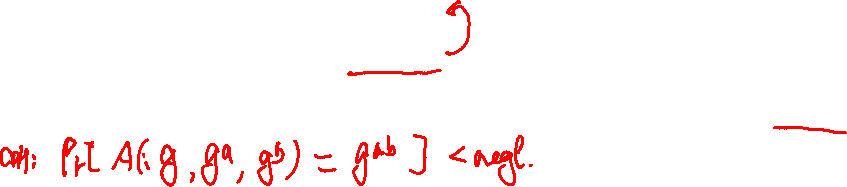 CDH: Pr[ A(: g, g^a, g^b) = g^ab ] < negl.